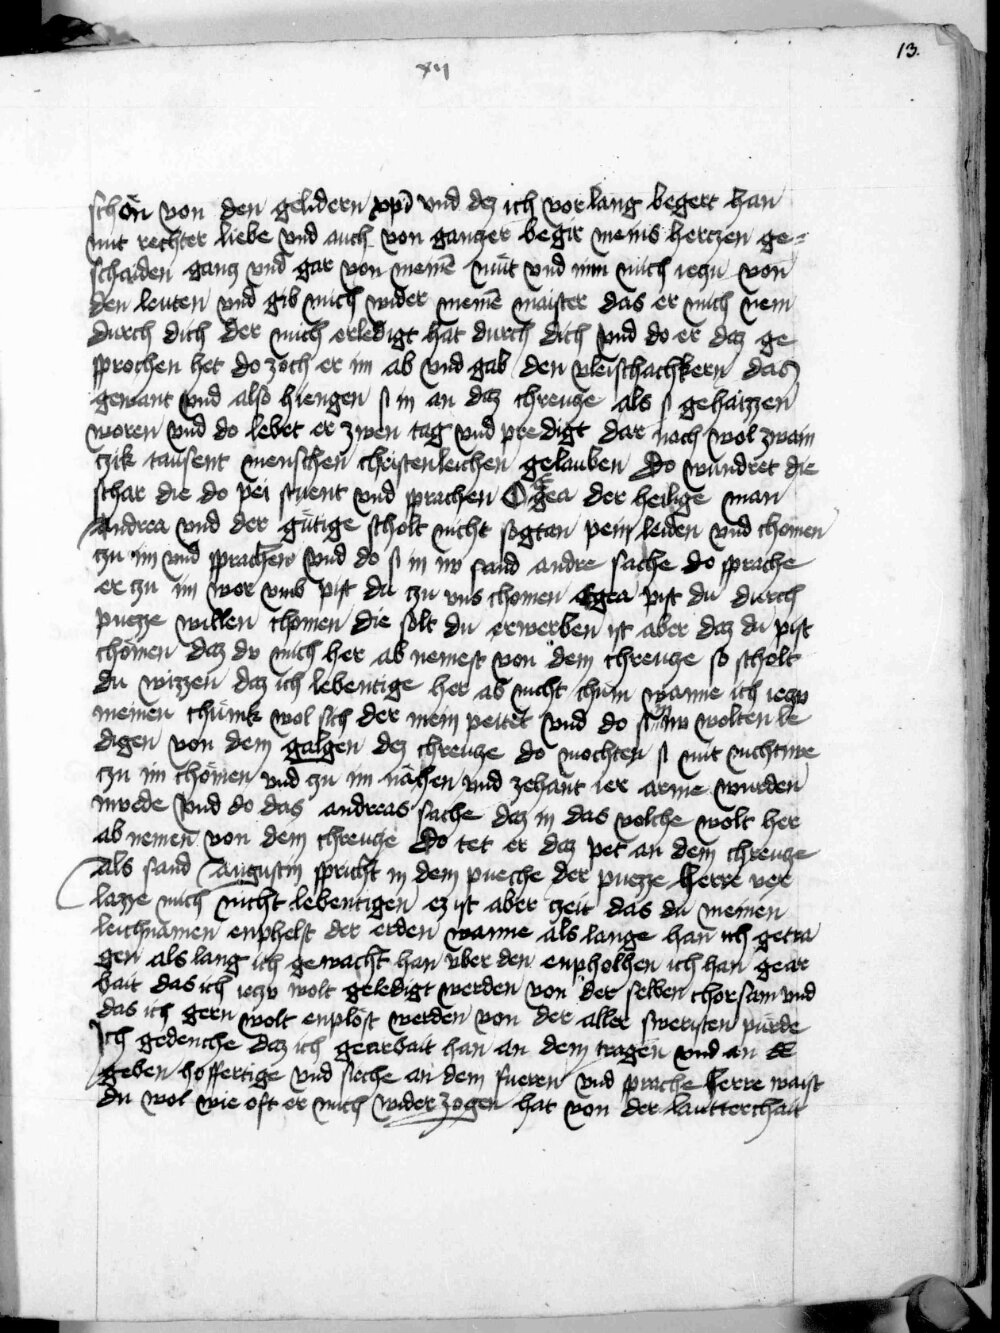 13.
xij
schön von den gelidern xpi vnd dez ich vor lang begert han
mit rechter liebe vnd auch von ganczer begir meins herczen ge=
schaiden gancz vnd gar von meinē müt vnd nim mich ieczu von
den leuten vnd gib mich wider meinē maister das er mich nem
durch dich der mich erledigt hat durch dich vnd do er daz ge
sprochen het do zoch er im ab vnd gab den vleischachkern das
gewant vnd also hiengen si in an daz chreucze als si gehaizzen
woren vnd do lebet er zwen tag vnd predigt dar nach wol zwain
czik tausent menschen christenleichen gelauben Do wundret die
schar die do pei stuent vnd sprachen Egea der heilige man
Andrea vnd der gütige scholt nicht sogtan pein leiden vnd chomen
czu im vnd sprachen vnd do si in nv sand andre sache do sprache
er czu im wor vmb pist du czu vns chomen Egea pist du durch
puezze willen chomen die solt du erwerben ist aber daz du pist
chömen daz dv mich her ab nemest von dem chreucze so scholt
du wizzen daz ich lebentige her ab nicht chum wanne ich ieczv
meinen chünik wol sich der mein peitet vnd do si in nv wolten le
digen von dem galgen dez chreucze do mochten si mit nichtwe
czu im chömen vnd czu im nächen vnd zehant ier arme wurden
mvede vnd do das andreas sache daz in das volche wolt her
ab nemen von dem chreucze Do tet er daz pet an dem chreucze
Als sand Augustin spricht in dem pueche der puezze herre ver
lazze mich nicht lebentigen ez ist aber czeit das du meinen
leichnamen enphelst der erden wanne als lange han ich getra
gen als lang ich gewacht han vber den enpholhen ich han gear
bait das ich ieczv wolt geledigt werden von der selben chorsam vnd
das ich gern wolt enplöst werden von der aller sweristen pürde
Ich gedenche daz ich gearbait han an dem tragen vnd an dē
geben hoffertige vnd sieche an dem fueren vnd sprache herre waist
du wol wie oft er mich wider zogen hat von der lautterchait